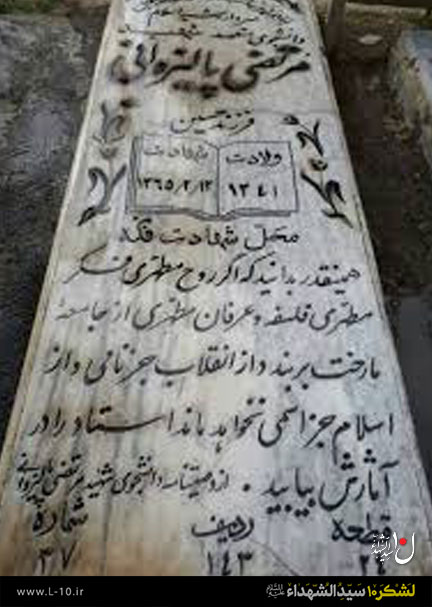 دانشجوی شهید
مرتضی پالیزوانی
فرزند حسین
ولادت شهادت
۱۳۴۱ ۱۳۶۵/۲/۱۲
محل شهادت فکه
همینقدر بدانید که اگر روح مطهری فکر
مطهری فلسفه و عرفان مطهری از جامعه
ما رخت بربندد از انقلاب جز نامی و از
اسلام جز اسمی نخواهد ماند استاد را در
آثارش بیابید . از وصیتنامه دانشجوی شهید مرتضی پالیزوانی
قطعه ردیف شماره
۲۴ ۱۴۳ ۳۷
www.L-10.ir لشکر۱۰ سیدالشهداء